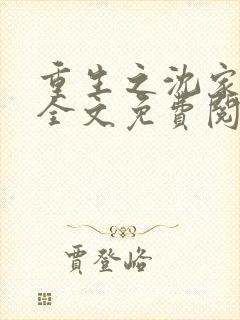 重生之沈家
全文免费阅
贾登峪